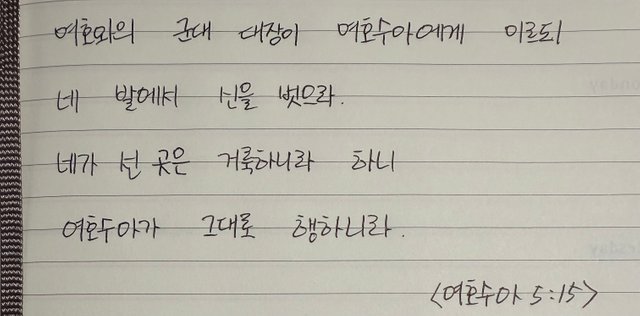 여호와의 군대 대장이 여호수아에게 이르되
네 발에서 신을 벗으라.
네가 선 곳은 거룩하니라 하니
여호수아가 그대로 행하니라.
<여호수아 5:15>